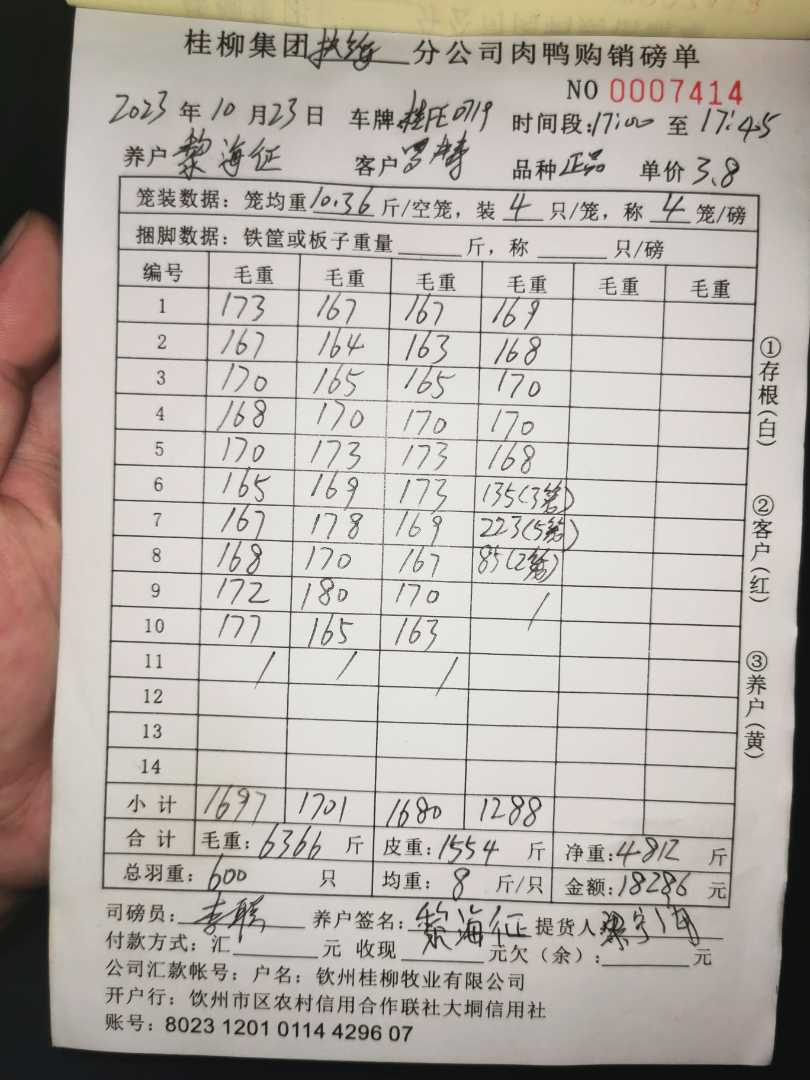 桂柳集团 分公司肉鸭购销磅单
NO 0007414
2023 年 10 月 23 日 车牌 桂FE0719 时间段:17:00 至 17:45
养户 黎海征 客户 品种 正品 单价 3.8
笼装数据：笼均重 10.36 斤/空笼，装 4 只/笼，称 4 笼/磅
捆脚数据：铁筐或板子重量 斤，称 只/磅
编号 毛重 毛重 毛重 毛重 毛重 毛重
1 173 167 167 169
2 167 164 163 168
3 170 165 165 170
4 168 170 170 170
5 170 173 173 168
6 165 169 173 135(3笼)
7 167 178 169 223(5笼)
8 168 170 167 85(2笼)
9 172 180 170 /
10 177 165 163
11 / / /
12
13
14
小计 1697 1701 1680 1288
合计 毛重:6366 斤 皮重:1554 斤 净重:4812 斤
总羽重:600 只 均重:8 斤/只 金额:18286 元
司磅员: 养户签名:黎海征 提货人:
付款方式：汇 元 收现 元欠（余）: 元
公司汇款帐号：户名：钦州桂柳牧业有限公司
开户行：饮州市区农村信用合作联社大垌信用社
账号：8023 1201 0114 4296 07
①存根(白)
②客户(红)
③养户(黄)